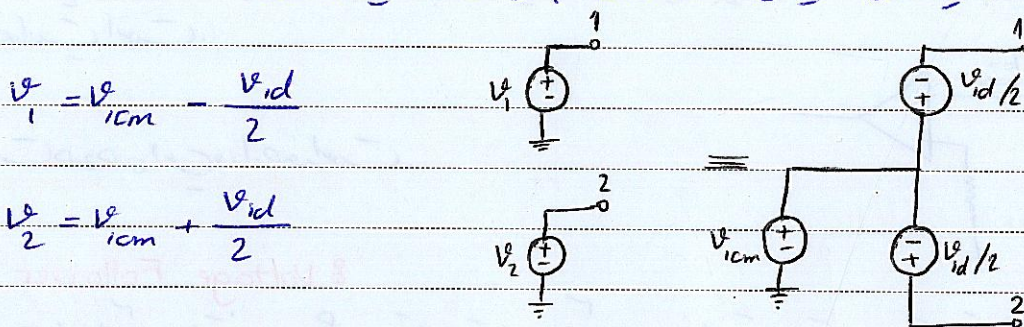 v₁ = v_icm - v_id/2
v₂ = v_icm + v_id/2
1
v₁
+
-
2
v₂
+
-
≡
1
-
+
v_id/2
v_icm
+
-
-
+
v_id/2
2